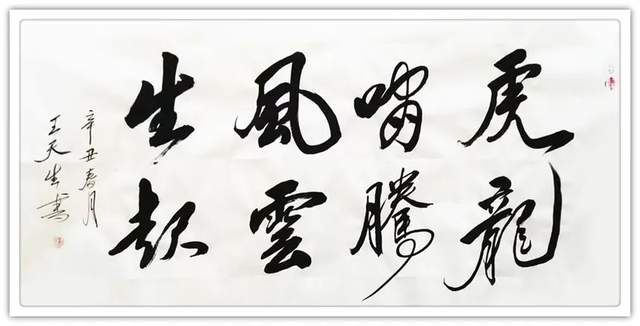 虎嘯風生
龍騰雲起
辛丑春月
王天生書